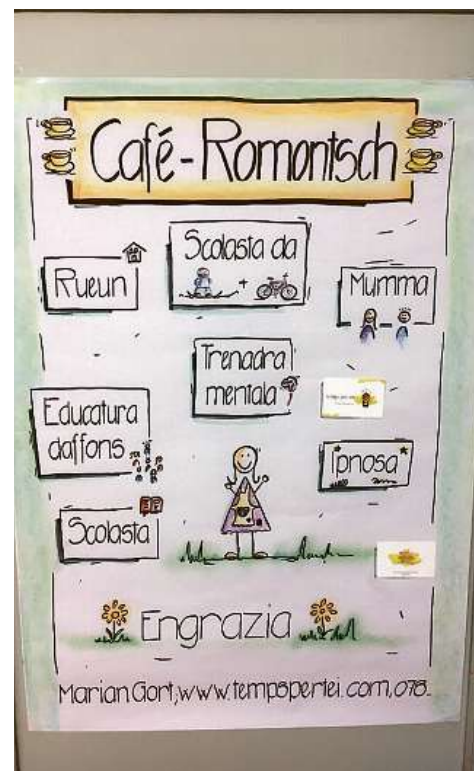 Café-Romontsch
Rueun
Scolasta da
+
Mumma
Trenadra
mentala
Educatura
daffons
Ipnosa
Scolasta
Engrazia
Marian Gort, www.tempspertei.com, 078